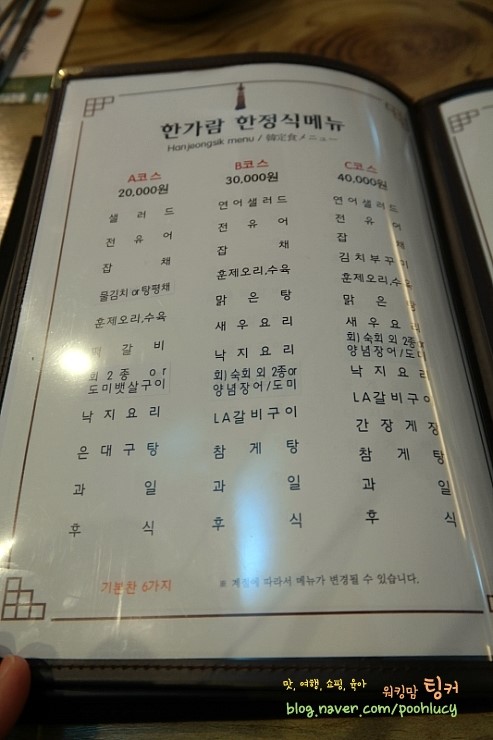 한가람 한정식메뉴
Hanjeongsik menu / 韓定食メニュー
A코스
20,000원
샐러드
전유어
잡채
물김치 or 탕평채
훈제오리,수육
갈비
회 2종 or
도미뱃살구이
낙지요리
은대구탕
과일
후식
B코스
30,000원
연어샐러드
전유어
잡채
훈제오리,수육
맑은탕
새우요리
낙지요리
회) 숙회 외 2종or
양념장어/도미
LA갈비구이
참게탕
과일
후식
C코스
40,000원
연어샐러드
전유어
잡채
김치부꾸미
훈제오리,수육
맑은탕
새우요리
회) 숙회 외 2종or
양념장어/도미
낙지요리
LA갈비구이
간장게장
참게탕
과일
후식
기본찬 6가지
※ 계절에 따라서 메뉴가 변경될 수 있습니다.
맛, 여행, 쇼핑, 육아 워킹맘 팅커
blog.naver.com/poohlucy